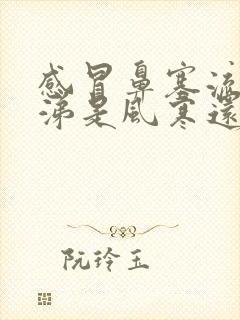 感冒鼻塞流
涕是風寒還
阮玲玉